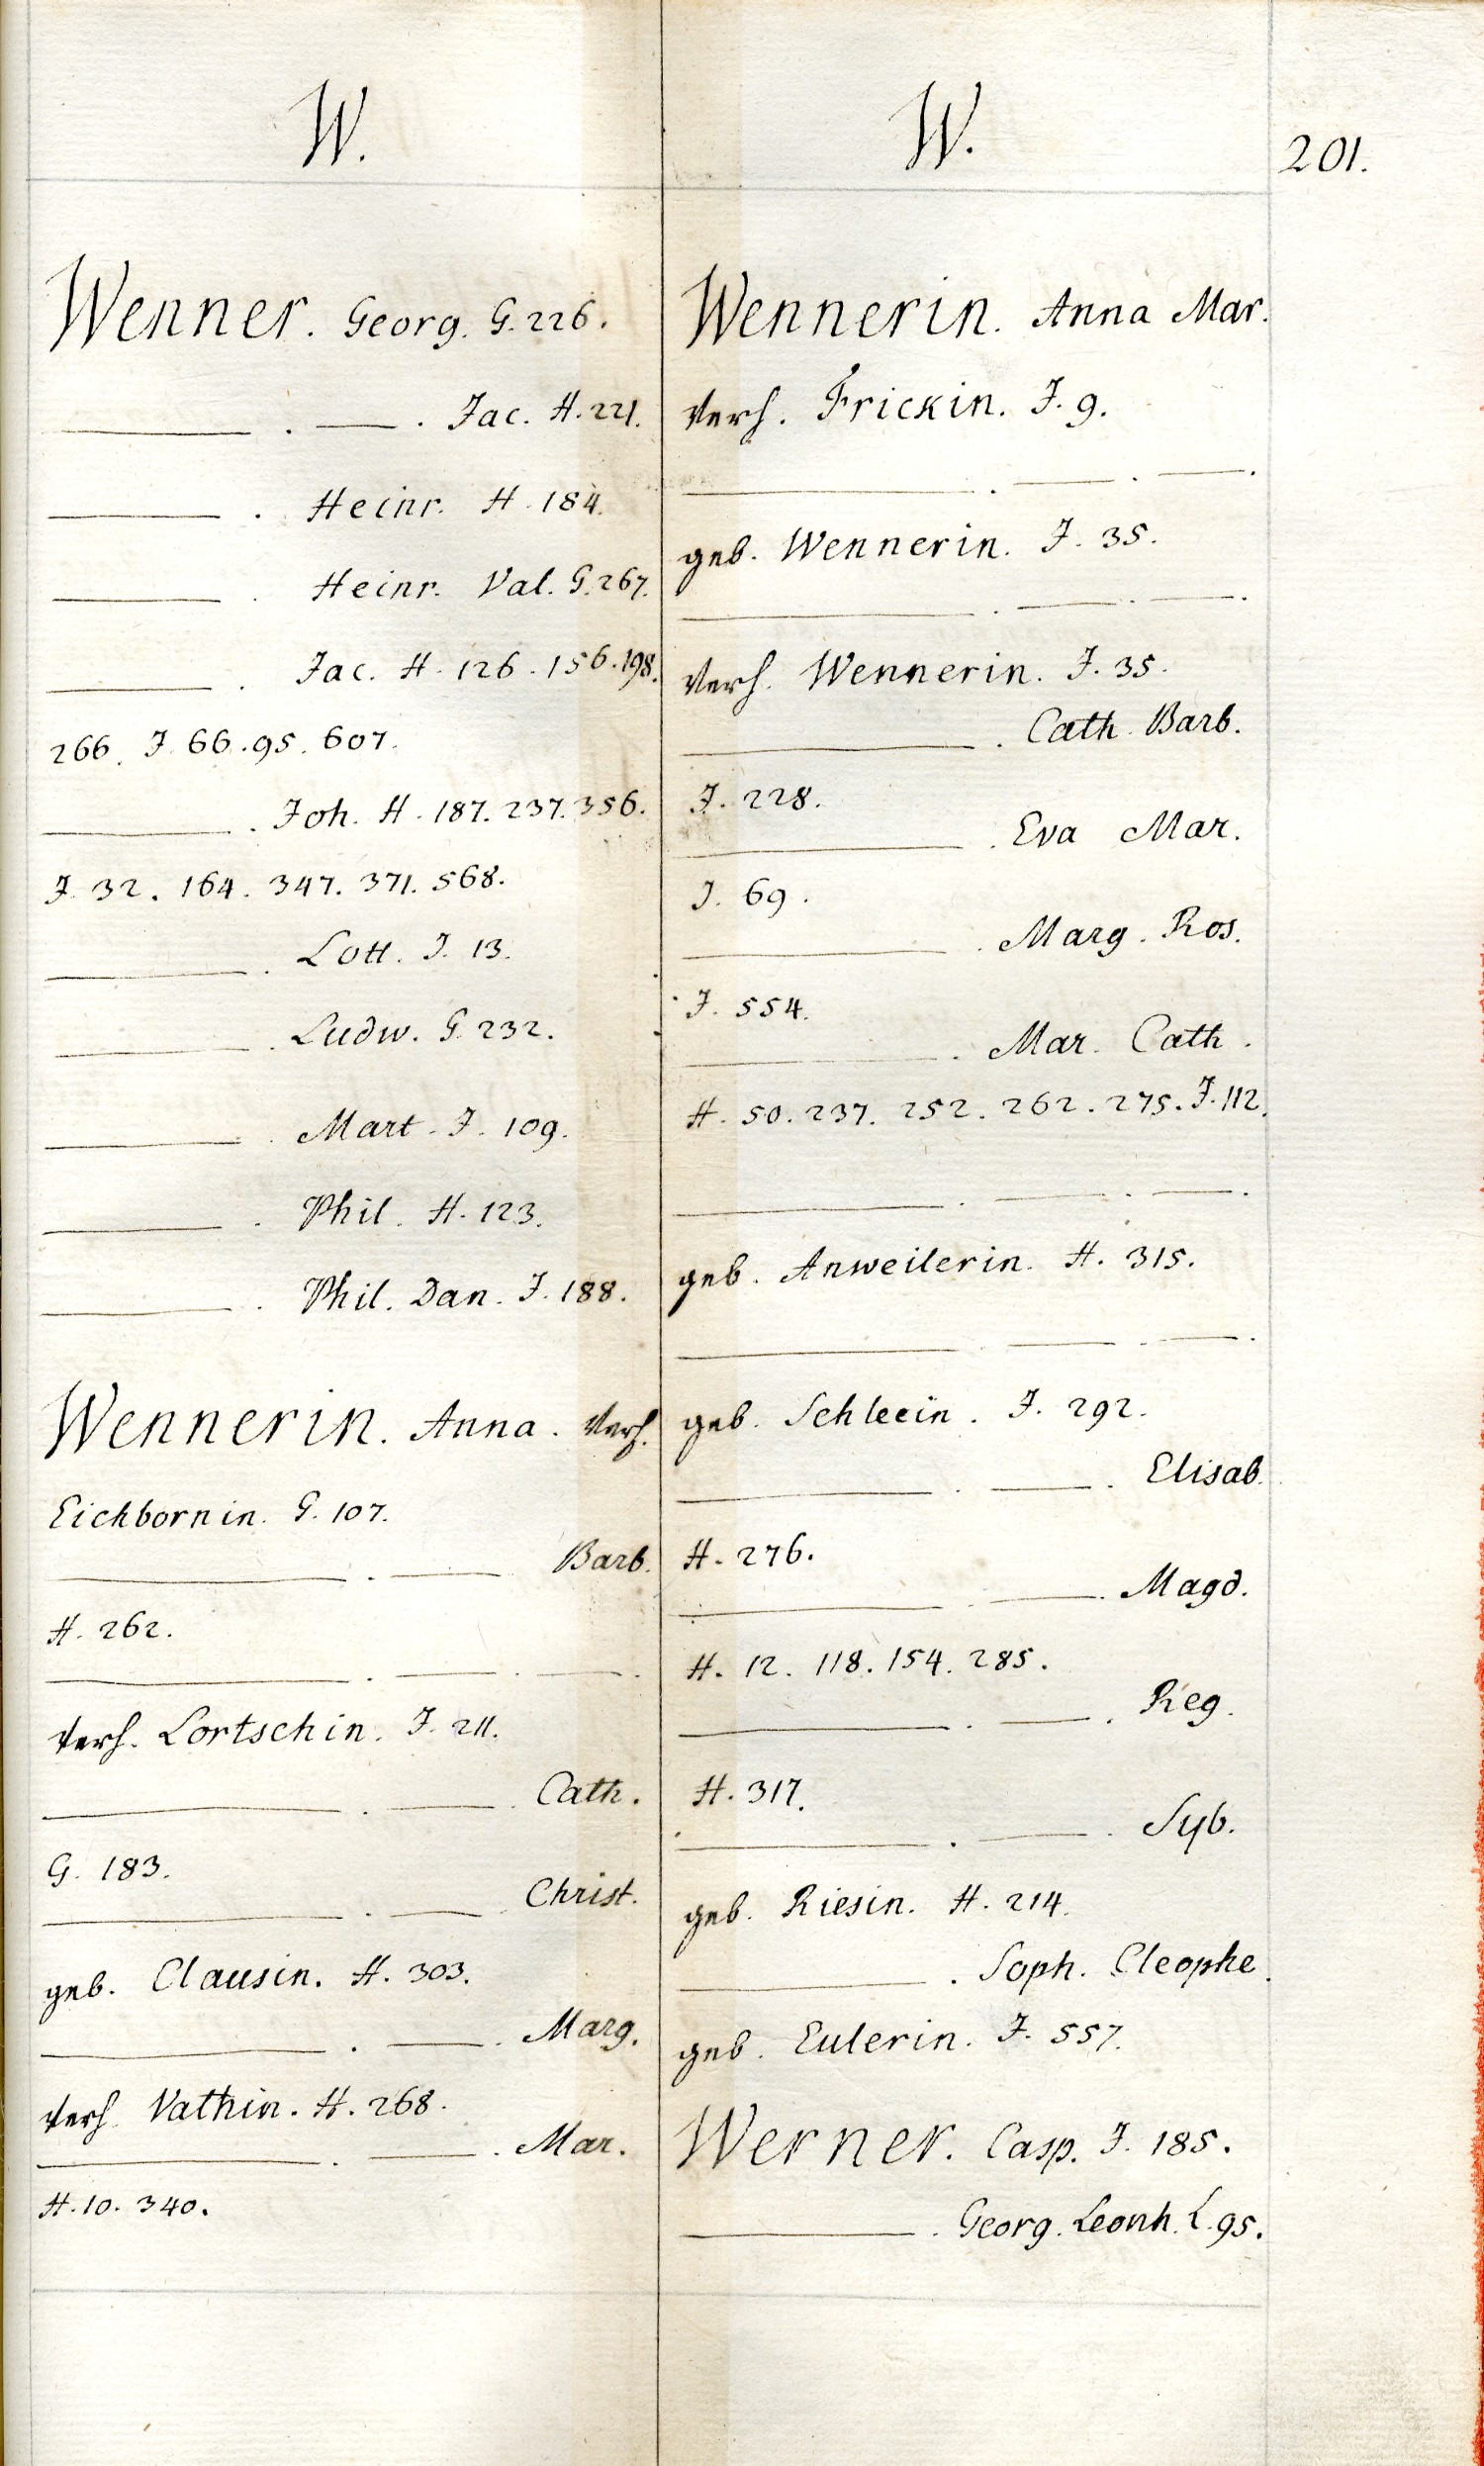 W.
Wenner. Georg. G. 226.
——— . —— . Jac. H. 221.
——— . Heinr. H. 184.
——— . Heinr. Val. G. 267.
——— . Jac. H. 126. 156. 198.
266. J. 66. 95. 607.
——— . Joh. H. 187. 237. 356.
J. 32. 164. 347. 371. 568.
——— . Lott. J. 13.
——— . Ludw. G. 232.
——— . Mart. J. 109.
——— . Phil. H. 123.
——— . Phil. Dan. J. 188.
Wennerin. Anna. verh.
Eichbornin. G. 107.
——— . —— Barb.
H. 262.
——— . —— . —— .
verh. Lortschin. J. 211.
——— . —— . Cath.
G. 183.
——— . —— . Christ.
geb. Clausin. H. 303.
——— . —— . Marg.
verh. Vathin. H. 268.
——— . —— . Mar.
H. 10. 340.
W.
201.
Wennerin. Anna Mar.
verh. Frickin. J. 9.
——— . —— . —— .
geb. Wennerin. J. 35.
——— . —— . —— .
verh. Wennerin. J. 35.
——— . Cath. Barb.
J. 228.
——— . Eva Mar.
J. 69.
——— . Marg. Ros.
J. 554.
——— . Mar. Cath.
H. 50. 237. 252. 262. 275. J. 112.
——— . —— . —— .
geb. Anweilerin. H. 315.
——— . —— . —— .
geb. Schleein. J. 292.
——— . —— . Elisab.
H. 276.
——— . —— . Magd.
H. 12. 118. 154. 285.
——— . —— . Reg.
H. 317.
——— . —— . Syb.
geb. Riesin. H. 214.
——— . Soph. Cleophe.
geb. Eulerin. J. 557.
Werner. Casp. J. 185.
——— . Georg. Leonh. L. 95.